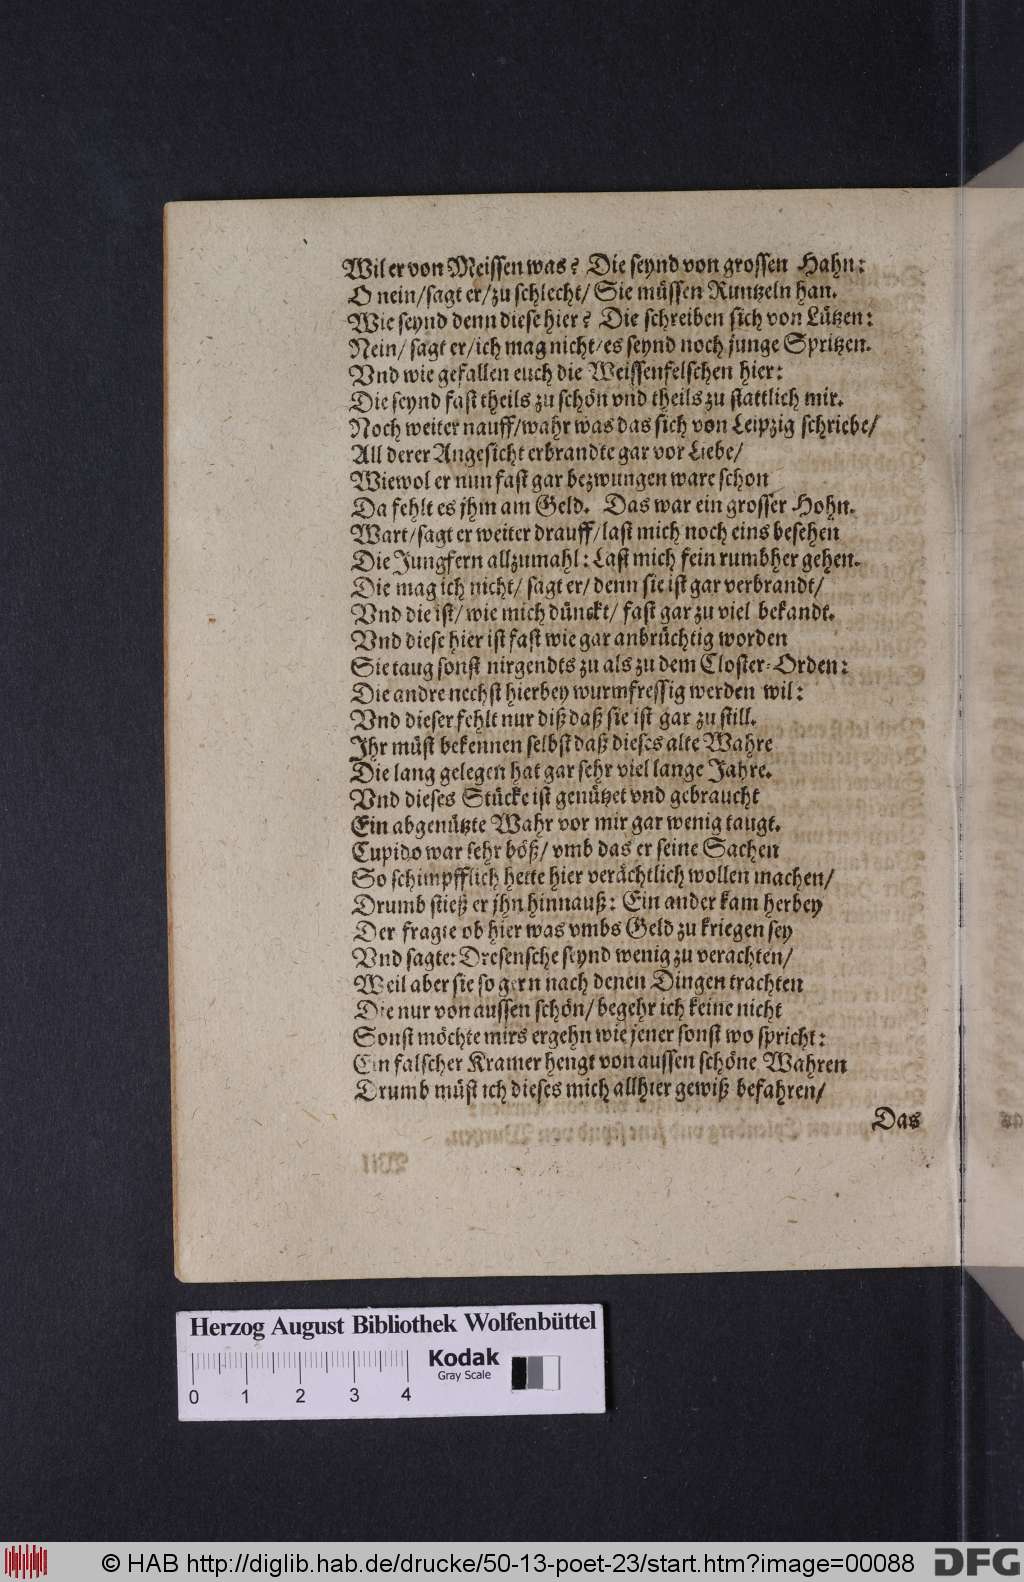 Wil er von Meissen was? Die seynd von grossen Hahn:
O nein/ sagt er/ zu schlecht/ Sie müssen Runtzeln han.
Wie seynd denn diese hier? Die schreiben sich von Lützen:
Nein/ sagt er/ ich mag nicht/ es seynd noch junge Spritzen.
Vnd wie gefallen euch die Weissenfelschen hier:
Die seynd fast theils zu schön vnd theils zu stattlich mir.
Noch weiter nauff/ wahr was das sich von Leipzig schriebe/
All derer Angesicht erbrandte gar vor Liebe/
Wiewol er nun fast gar bezwungen ware schon
Da fehlt es jhm am Geld. Das war ein grosser Hohn.
Wart/ sagt er weiter drauff/ last mich noch eins besehen
Die Jungfern allzumahl: Last mich fein rumbher gehen.
Die mag ich nicht/ sagt er/ denn sie ist gar verbrandt/
Vnd die ist/ wie mich dünckt/ fast gar zu viel bekandt.
Vnd diese hier ist fast wie gar anbrüchtig worden
Sie taug sonst nirgendts zu als zu dem Closter-Orden:
Die andre nechst hierbey wurmfressig werden wil:
Vnd dieser fehlt nur diß daß sie ist gar zu still.
Jhr müst bekennen selbst daß dieses alte Wahre
Die lang gelegen hat gar sehr viel lange Jahre.
Vnd dieses Stücke ist genützet vnd gebraucht
Ein abgenützte Wahr vor mir gar wenig taugt.
Cupido war sehr böß/ vmb das er seine Sachen
So schimpfflich hette hier verächtlich wollen machen/
Drumb stieß er jhn hinnauß: Ein ander kam herbey
Der fragte ob hier was vmbs Geld zu kriegen sey
Vnd sagte: Dresensche seynd wenig zu verachten/
Weil aber sie so gern nach denen Dingen trachten
Die nur von aussen schön/ begehr ich keine nicht
Sonst möchte mirs ergehn wie jener sonst wo spricht:
Ein falscher Kramer hengt von aussen schöne Wahren
Drumb müst ich dieses mich allhier gewiß befahren/
Das
Herzog August Bibliothek Wolfenbüttel
Kodak
Gray Scale
0 1 2 3 4
© HAB http://diglib.hab.de/drucke/50-13-poet-23/start.htm?image=00088
DFG